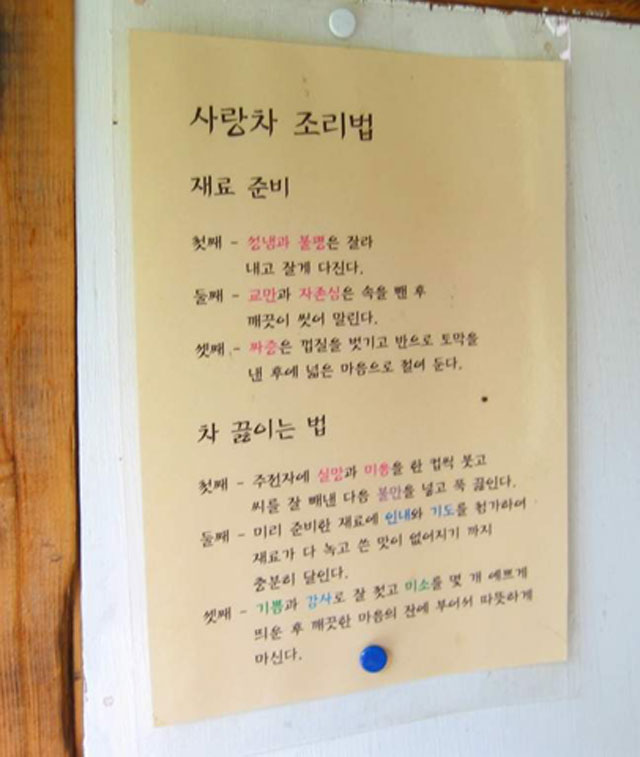 사랑차 조리법
재료 준비
첫째 - 성냄과 불평은 잘라
내고 잘게 다진다.
둘째 - 교만과 자존심은 속을 뺀 후
깨끗이 씻어 말린다.
셋째 - 짜증은 껍질을 벗기고 반으로 토막을
낸 후에 넓은 마음으로 절여 둔다.
차 끓이는 법
첫째 - 주전자에 실망과 미움을 한 컵씩 붓고
씨를 잘 빼낸 다음 불만을 넣고 푹 끓인다.
둘째 - 미리 준비한 재료에 인내와 기도를 첨가하여
재료가 다 녹고 쓴 맛이 없어지기 까지
충분히 달인다.
셋째 - 기쁨과 감사로 잘 젓고 미소를 몇 개 예쁘게
띄운 후 깨끗한 마음의 잔에 부어서 따뜻하게
마신다.